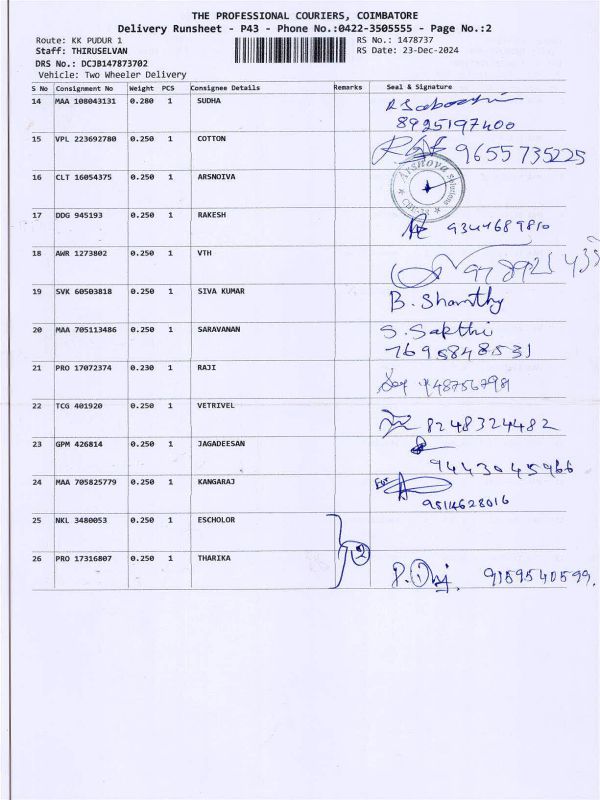 THE PROFESSIONAL COURIERS, COIMBATORE
Delivery Runsheet - P43 - Phone No.:0422-3505555 - Page No.:2
Route: KK PUDUR 1 RS No.: 1478737
Staff: THIRUSELVAN RS Date: 23-Dec-2024
DRS No.: DCJB147873702
Vehicle: Two Wheeler Delivery
S No Consignment No Weight PCS Consignee Details Remarks Seal & Signature
14 MAA 108043131 0.280 1 SUDHA
8925197400
15 VPL 223692780 0.250 1 COTTON 9655735225
16 CLT 16054375 0.250 1 ARSNOIVA Arsnova Solutions
17 DDG 945193 0.250 1 RAKESH 9344689810
18 AWR 1273802 0.250 1 VTH
19 SVK 60503818 0.250 1 SIVA KUMAR B. Shanthy
20 MAA 705113486 0.250 1 SARAVANAN S. Sakthi
7695848531
21 PRO 17072374 0.230 1 RAJI
22 TCG 401920 0.250 1 VETRIVEL 8248324482
23 GPM 426814 0.250 1 JAGADEESAN
9443045966
24 MAA 705825779 0.250 1 KANGARAJ For
9514628016
25 NKL 3480053 0.250 1 ESCHOLOR
2
26 PRO 17316807 0.250 1 THARIKA 9159540599.